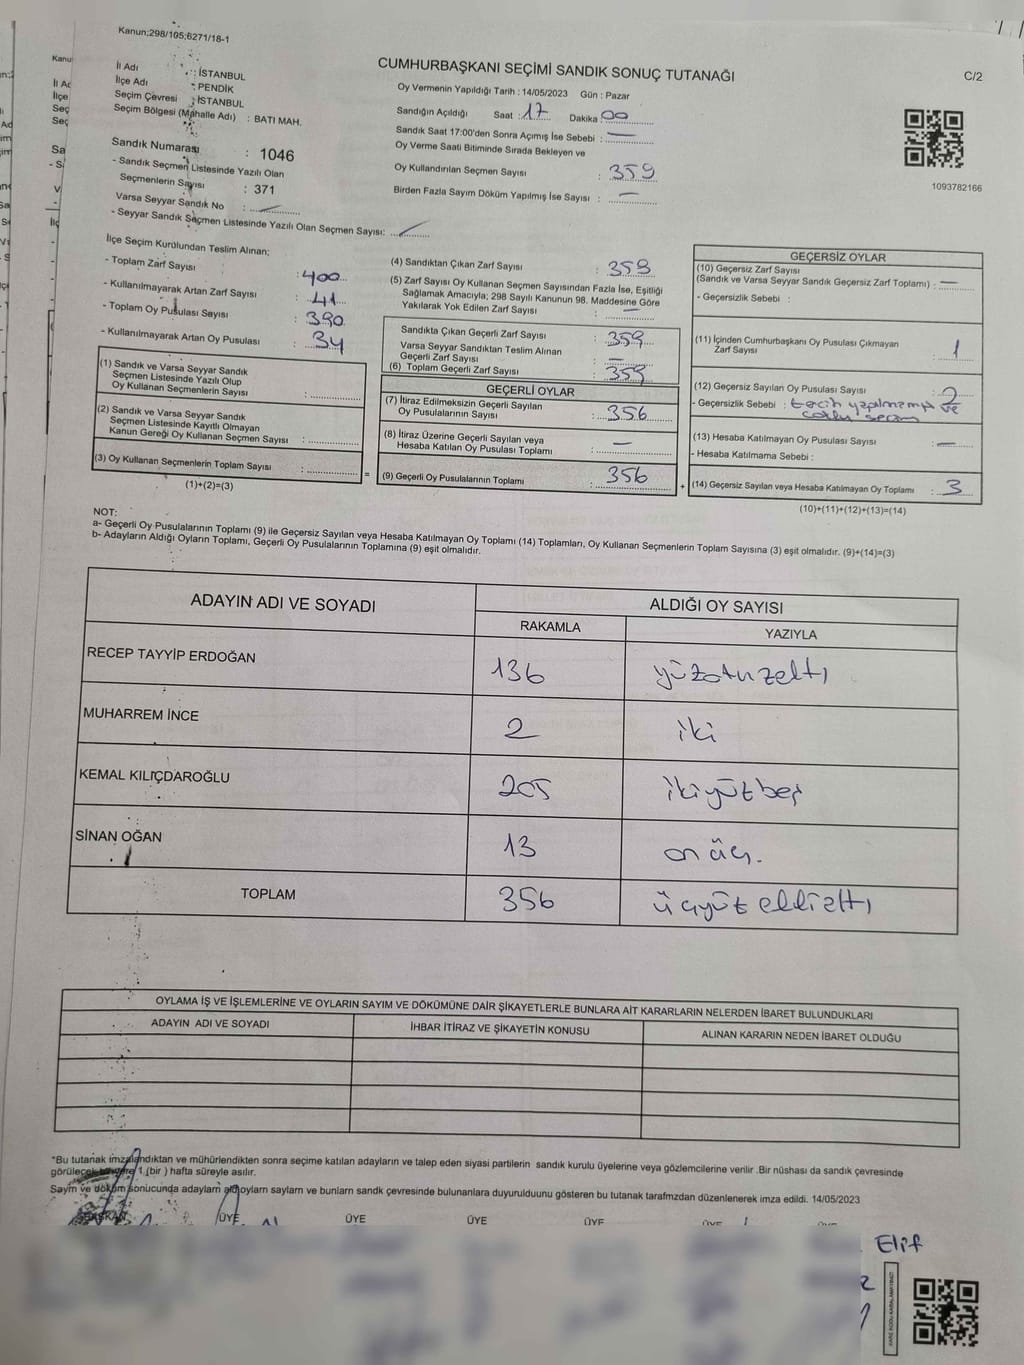 Kanun;298/105;6271/18-1
İl Adı : İSTANBUL
İlçe Adı : PENDİK
Seçim Çevresi : İSTANBUL
Seçim Bölgesi (Mahalle Adı) : BATI MAH.
Sandık Numarası : 1046
- Sandık Seçmen Listesinde Yazılı Olan
Seçmenlerin Sayısı : 371
Varsa Seyyar Sandık No :
- Seyyar Sandık Seçmen Listesinde Yazılı Olan Seçmen Sayısı:
CUMHURBAŞKANI SEÇİMİ SANDIK SONUÇ TUTANAĞI
C/2
Oy Vermenin Yapıldığı Tarih : 14/05/2023 Gün : Pazar
Sandığın Açıldığı Saat : 17 Dakika : 00
Sandık Saat 17:00'den Sonra Açımış İse Sebebi : —
Oy Verme Saati Bitiminde Sırada Bekleyen ve
Oy Kullandırılan Seçmen Sayısı : 359
Birden Fazla Sayım Döküm Yapılmış İse Sayısı : —
1093782166
İlçe Seçim Kurulundan Teslim Alınan;
- Toplam Zarf Sayısı : 400
- Kullanılmayarak Artan Zarf Sayısı : 41
- Toplam Oy Pusulası Sayısı : 390
- Kullanılmayarak Artan Oy Pusulası : 34
(1) Sandık ve Varsa Seyyar Sandık
Seçmen Listesinde Yazılı Olup
Oy Kullanan Seçmenlerin Sayısı :
(2) Sandık ve Varsa Seyyar Sandık
Seçmen Listesinde Kayıtlı Olmayan
Kanun Gereği Oy Kullanan Seçmen Sayısı :
(3) Oy Kullanan Seçmenlerin Toplam Sayısı :
(1)+(2)=(3)
=
(4) Sandıktan Çıkan Zarf Sayısı : 359
(5) Zarf Sayısı Oy Kullanan Seçmen Sayısından Fazla İse, Eşitliği
Sağlamak Amacıyla; 298 Sayılı Kanunun 98. Maddesine Göre
Yakılarak Yok Edilen Zarf Sayısı : —
Sandıkta Çıkan Geçerli Zarf Sayısı : 359
Varsa Seyyar Sandıktan Teslim Alınan
Geçerli Zarf Sayısı : —
(6) Toplam Geçerli Zarf Sayısı : 359
GEÇERLİ OYLAR
(7) İtiraz Edilmeksizin Geçerli Sayılan
Oy Pusulalarının Sayısı : 356
(8) İtiraz Üzerine Geçerli Sayılan veya
Hesaba Katılan Oy Pusulası Toplamı : —
(9) Geçerli Oy Pusulalarının Toplamı : 356
+
GEÇERSİZ OYLAR
(10) Geçersiz Zarf Sayısı
(Sandık ve Varsa Seyyar Sandık Geçersiz Zarf Toplamı) : —
- Geçersizlik Sebebi :
(11) İçinden Cumhurbaşkanı Oy Pusulası Çıkmayan
Zarf Sayısı : 1
(12) Geçersiz Sayılan Oy Pusulası Sayısı : 2
- Geçersizlik Sebebi : ve
seçim
(13) Hesaba Katılmayan Oy Pusulası Sayısı : —
- Hesaba Katılmama Sebebi :
(14) Geçersiz Sayılan veya Hesaba Katılmayan Oy Toplamı : 3
(10)+(11)+(12)+(13)=(14)
NOT:
a- Geçerli Oy Pusulalarının Toplamı (9) ile Geçersiz Sayılan veya Hesaba Katılmayan Oy Toplamı (14) Toplamları, Oy Kullanan Seçmenlerin Toplam Sayısına (3) eşit olmalıdır. (9)+(14)=(3)
b- Adayların Aldığı Oyların Toplamı, Geçerli Oy Pusulalarının Toplamına (9) eşit olmalıdır.
ADAYIN ADI VE SOYADI ALDIĞI OY SAYISI
RAKAMLA YAZIYLA
RECEP TAYYİP ERDOĞAN 136 yüzotuzaltı
MUHARREM İNCE 2 iki
KEMAL KILIÇDAROĞLU 205 ikiyüzbeş
SİNAN OĞAN 13 on üç.
TOPLAM 356 üçyüz elli altı
OYLAMA İŞ VE İŞLEMLERİNE VE OYLARIN SAYIM VE DÖKÜMÜNE DAİR ŞİKAYETLERLE BUNLARA AİT KARARLARIN NELERDEN İBARET BULUNDUKLARI
ADAYIN ADI VE SOYADI İHBAR İTİRAZ VE ŞİKAYETİN KONUSU ALINAN KARARIN NEDEN İBARET OLDUĞU
*Bu tutanak imzalandıktan ve mühürlendikten sonra seçime katılan adayların ve talep eden siyasi partilerin sandık kurulu üyelerine veya gözlemcilerine verilir .Bir nüshası da sandık çevresinde
görülecek bir yere 1 (bir ) hafta süreyle asılır.
Sayım ve döküm sonucunda adayların aldığı oyların sayıları ve bunların sandk çevresinde bulunanlara duyurulduunu gösteren bu tutanak tarafmzdan düzenlenerek imza edildi. 14/05/2023
BAŞKAN ÜYE ÜYE ÜYE ÜYE ÜYE
Elif